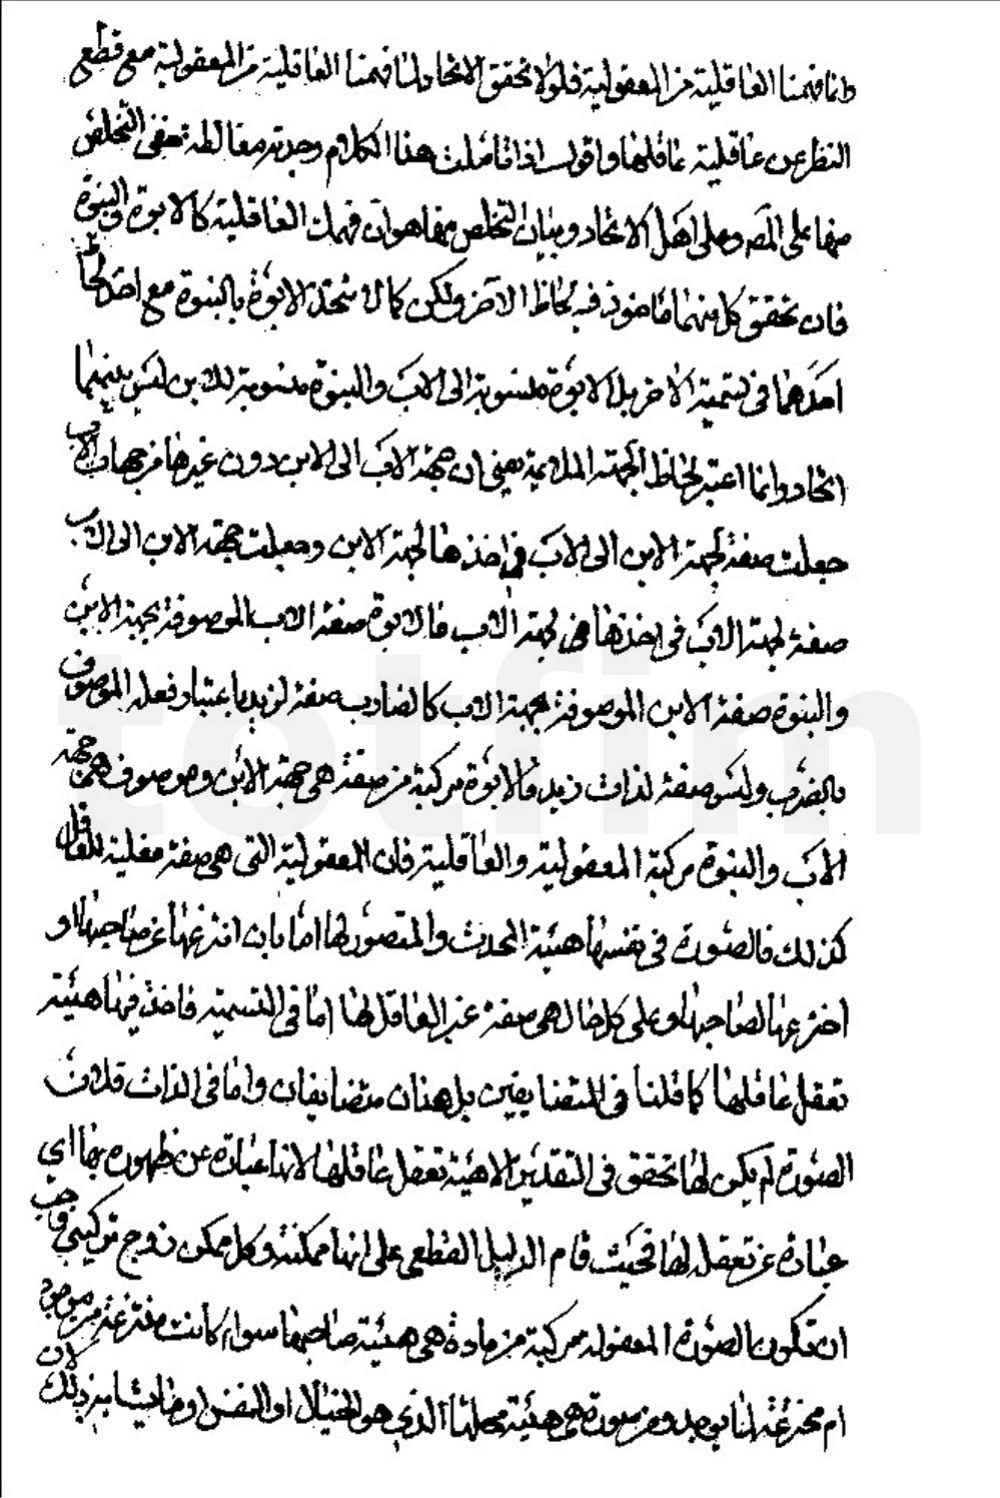 وانما فهمنا العاقلية من المعقولية فلولا تحقق الاتحاد لما فهمنا العاقلية من المعقولية مع قطع
النظر عن عاقلية عاقلها واقول اذا تاملت هذا الكلام وجدته مغالطة تخفى التخلص
منها على المص وعلى اهل الاتحاد وبيان التخلص منها هو ان فهمك العاقلية كالابوة والبنوة
فان تحقق كل منهما ماخوذ فيه لحاظ الاخر ولكن كما لا تتحد الابوة بالبنوة مع اخذ لحاظ
احدهما في تسمية الاخر بل الابوة منسوبة الى الاب والبنوة منسوبة للابن ليس بينهما
اتحاد وانما اعتبر لحاظ الجهة الملايمة يعني ان جهة الاب الى الابن دون غيرها من جهات الاب
جعلت صفة لجهة الابن الى الاب في اخذها لجهة الابن وجعلت جهة الابن الى الاب
صفة لجهة الاب في اخذها من لجهة الاب فالابوة صفة الاب الموصوفة بجهة الابن
والبنوة صفة الابن الموصوفة بجهة الاب كالضارب صفة لزيد باعتبار فعله الموصوف
بالضرب وليس صفة لذات زيد فالابوة مركبة من صفة هي جهة الابن وموصوف هي جهة
الاب والبنوة مركبة المعقولية والعاقلية فان المعقولية التي هي صفة فعلية للعاقل
كذلك فالصورة في نفسها هيئة المحدث والمتصور لها اما بان انتزعها عن صاحبها او
اخترعها لصاحبها وعلى كل حال هي صفة غير العاقل لها اما في التسمية فاخذ فيها هيئة
تعقل عاقلها كما قلنا في المتضايفين بل هذان متضايفان واما في الذات فلان
الصورة لم يكن لها تحقق في التقدير الا هيئة تعقل عاقلها لانها عبارة عن ظهوره بها اي
عبارة عن تعقله لها فحيث قام الدليل القطعي على انها ممكنة وكل ممكن زوج تركيبي وجب
ان تكون الصورة المعقولة مركبة من مادة هي هيئة صاحبها سواء كانت منتزعة من موجود
ام مخترعة لما يوجد ومن صورة هي هيئة محلها الذي هو الخيال او النفس او ما يشابه ذلك لان